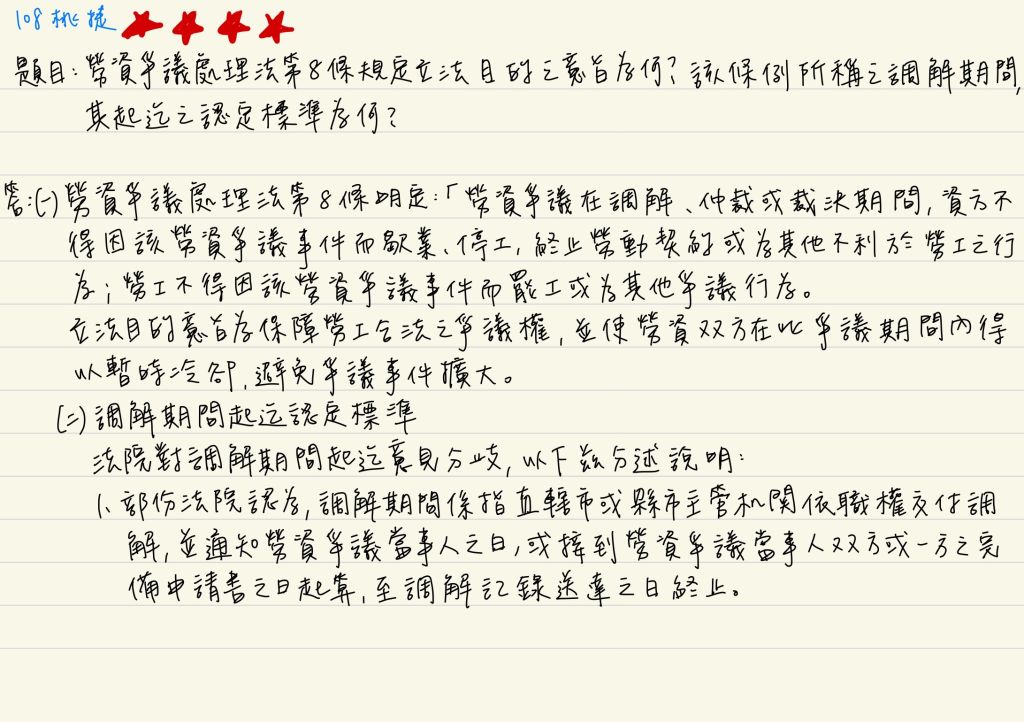 108 桃捷
題目：勞資爭議處理法第8條規定立法目的之意旨為何？該條例所稱之調解期間，
其起迄之認定標準為何？
答：(一)勞資爭議處理法第8條明定：「勞資爭議在調解、仲裁或裁決期間，資方不
得因該勞資爭議事件而歇業、停工，終止勞動契約或為其他不利於勞工之行
為；勞工不得因該勞資爭議事件而罷工或為其他爭議行為。
立法目的意旨為保障勞工合法之爭議權，並使勞資双方在此爭議期間內得
以暫時冷卻，避免爭議事件擴大。
(二)調解期間起迄認定標準
法院對調解期間起迄意見分歧，以下茲分述說明：
1、部份法院認為，調解期間係指直轄市或縣市主管机関依職權交付調
解，並通知勞資爭議當事人之日，或接到勞資爭議當事人双方或一方之完
備申請書之日起算，至調解記錄送達之日終止。